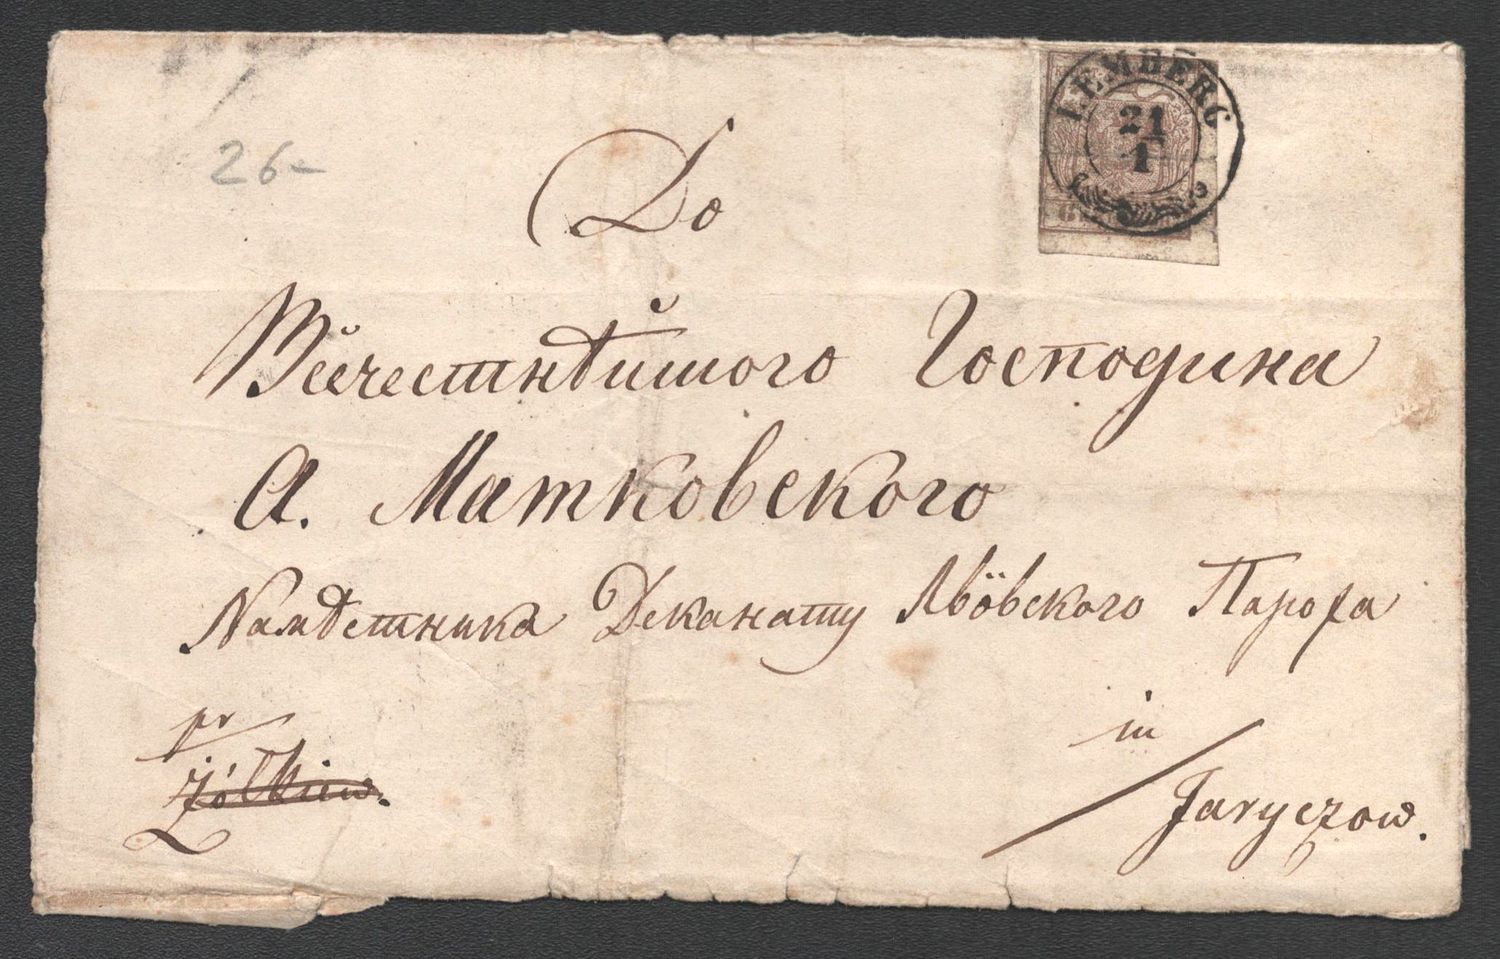 26-
LEMBERG
21
1
До
Всечестнѣйшого Господина
А. Матковского
Намѣстника Деканату Львôвского Пароха
pr
Żółkiew.
in
Jaryczow.